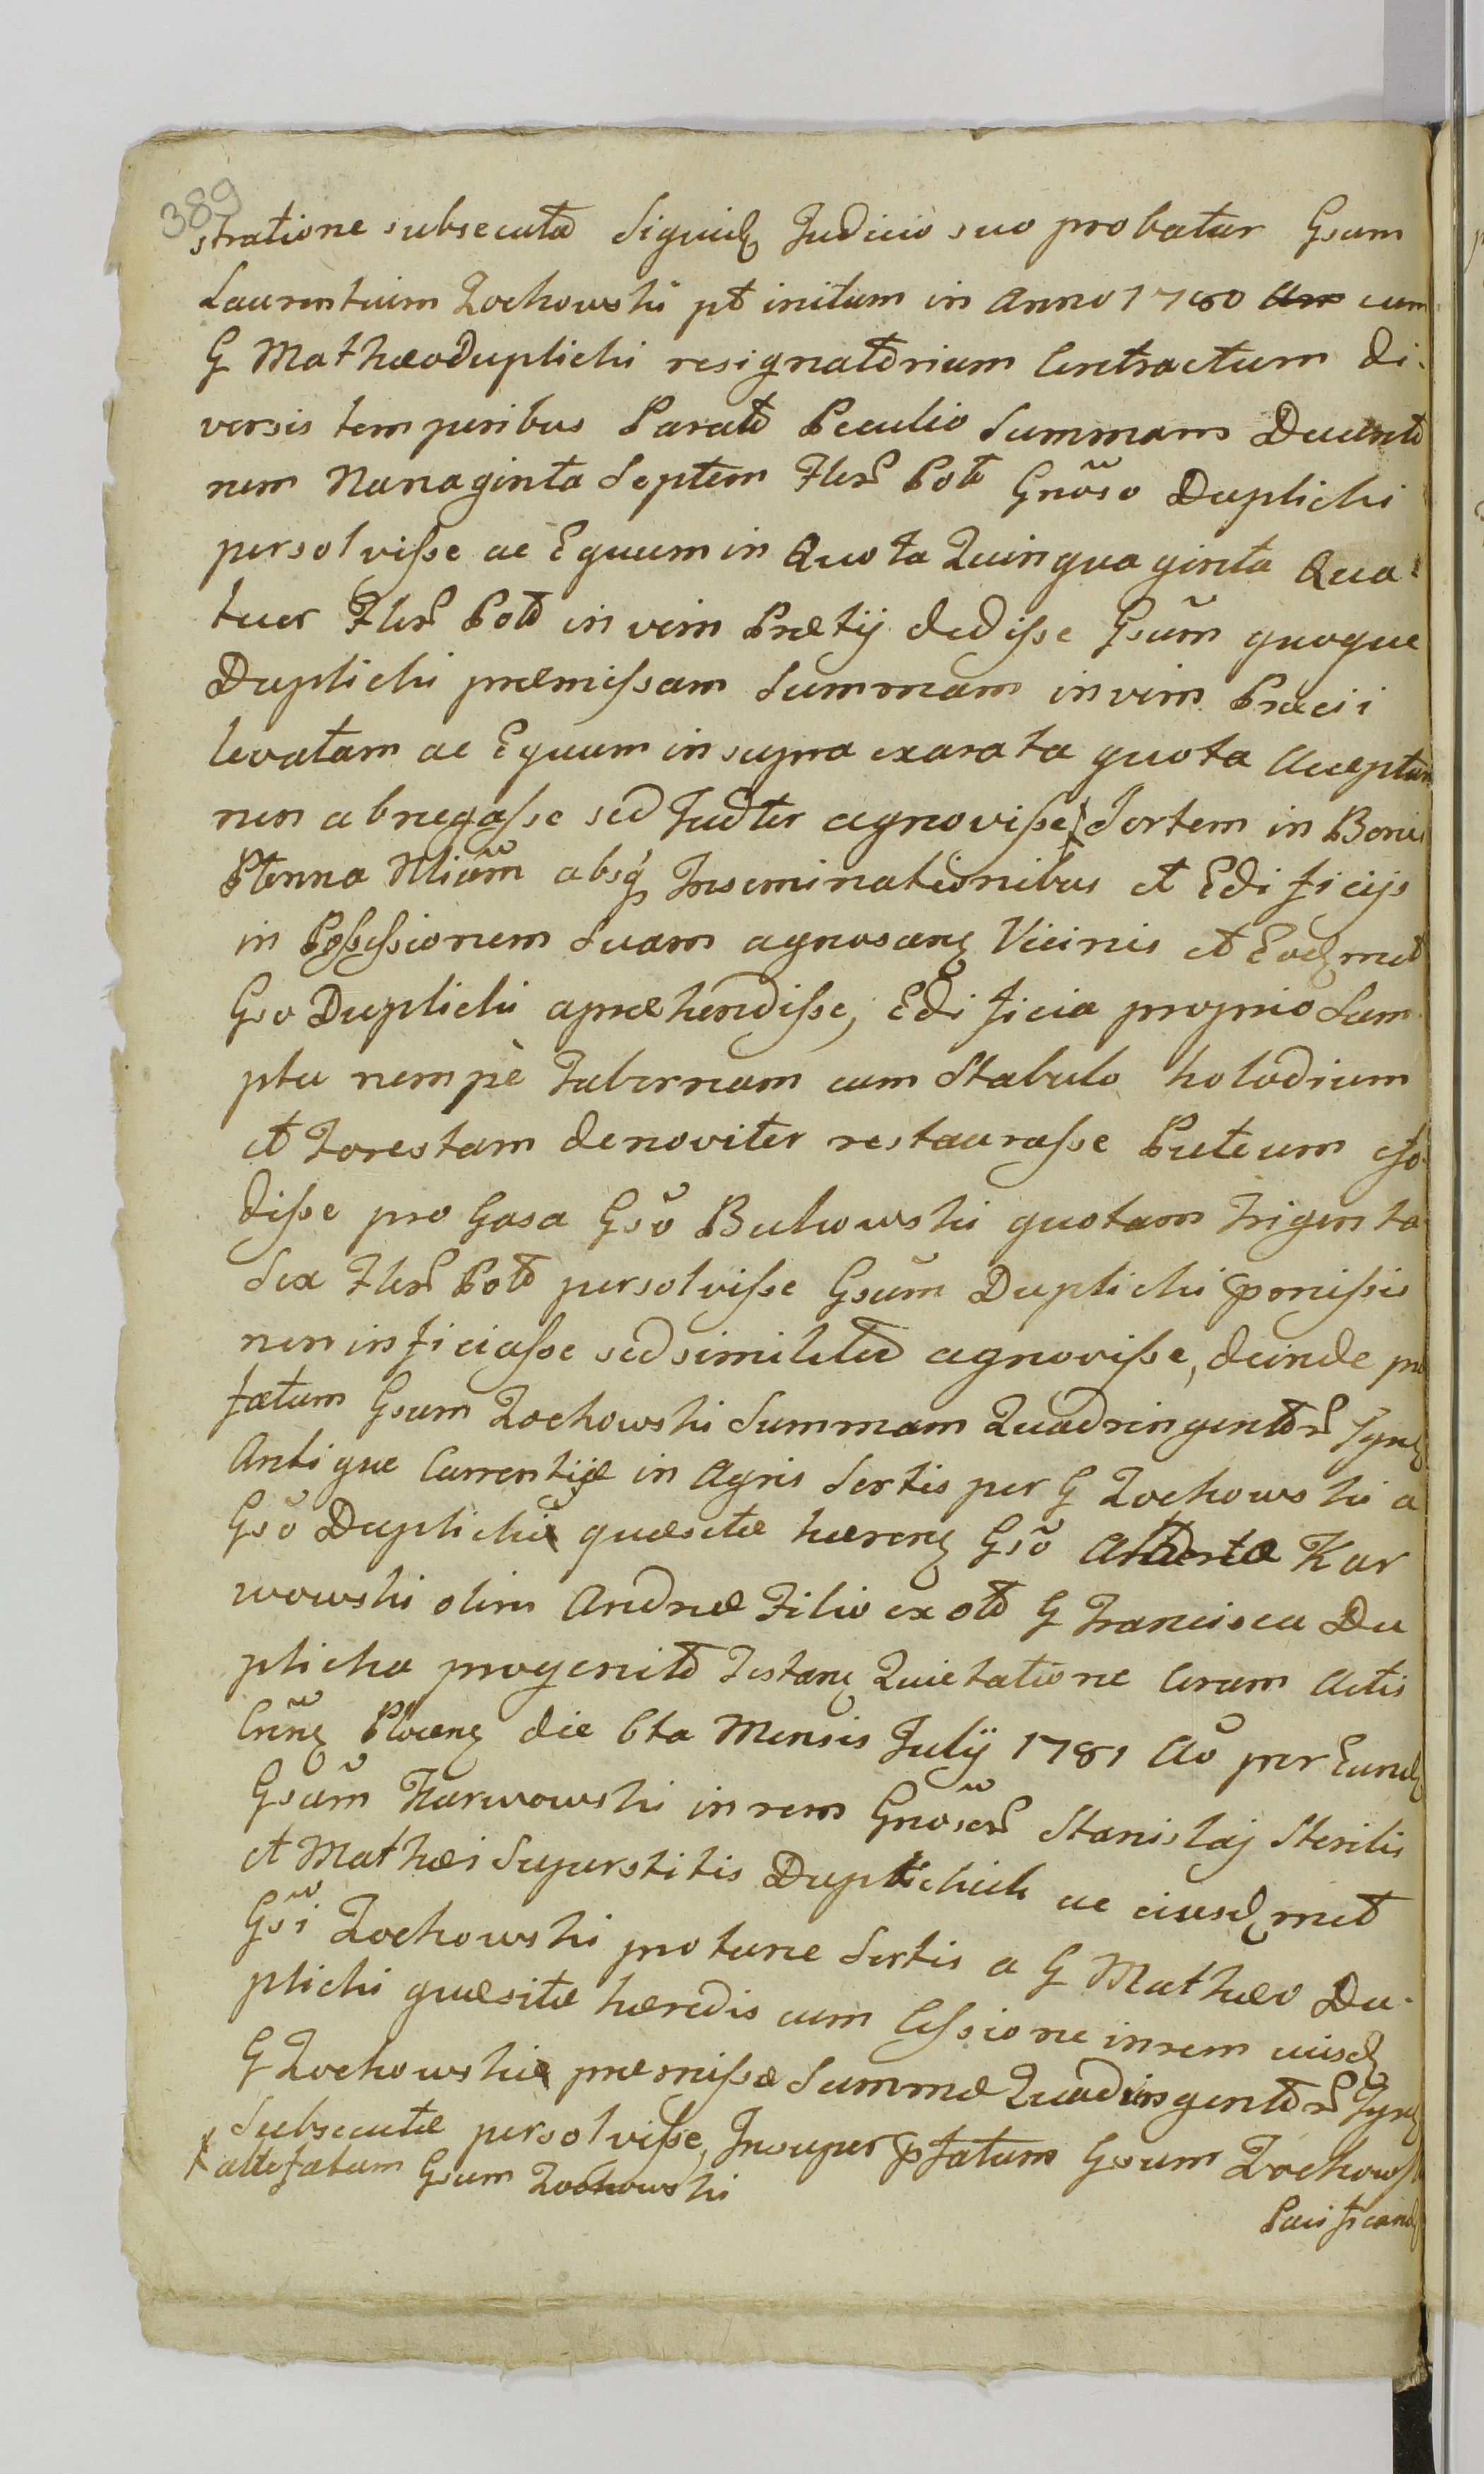 389
stratione subsecuta Siquidq Judicio suo probatur Gsum
Laurentium Zochowski pt initum in Anno 1780 cum
G Mathæo Duplicki resignatorium Contractum di-
versis temporibus Parato Peculio Summam Ducento
rum Nanaginta Septem Flor Pol Gnoso Duplicki
persolviſse ac Equum in Quota Quinquaginta Qua-
tuor Flor Pol in vim Prætij dediſse Gsum quoque
Duplicki præmiſsam Summam in vim Præcii
levatam ac Equum in supra exarata quota Acceptum
non abnegaſse sed Judter agnoviſse Sortem in Bonis
Ptenna absq Inseminationibus et Edificijs
in Poſseſsionem Suam agnoscenq Vicinis et Eodqmet
Gso Duplicki apræhendiſse, Edificia proprio Sum-
ptu nempè Tabernam cum Stabulo holodium
et Forestam denoviter restauraſse Puteum eſso-
diſse pro Gasa Gso Bukowski quotam Triginta
Sex Flor Pol persolviſse Gsum Duplicki pmiſsis
non inficiaſse sed simili agnoviſse, deinde præ
fatum Gsum Zochowski Summam Quadringentor Tynf
Antiquæ Currentiæ in Agris Sortis per G Zochowski a
Gso Duplicki quæsitæ hærenq Gso Kar
wowski olim Andreæ Filio ex olt G Francisca Du
plicka progenito Testanq Quietatione Coram Actis
Crenq Plocenq die 6ta Mensis Julij 1781 Ao per Eundq
Gsum Karwowski in rem Gnosor Stanislaj Sterilis
et Mathæi Superstitis Duplickich ac ejusdqmet
Gsi Zochowski pro tunc Sortis a G Mathæo Du-
plicki quæsitæ hæredis cum Ceſsione in rem eiusdq
G Zochowski præmiſsæ Summæ Quadringentor Tynf
Subsecutæ persolviſse, Insuper pfatum Gsum Zochowski
* attefatum Gsum Zochowski
Pacificandq